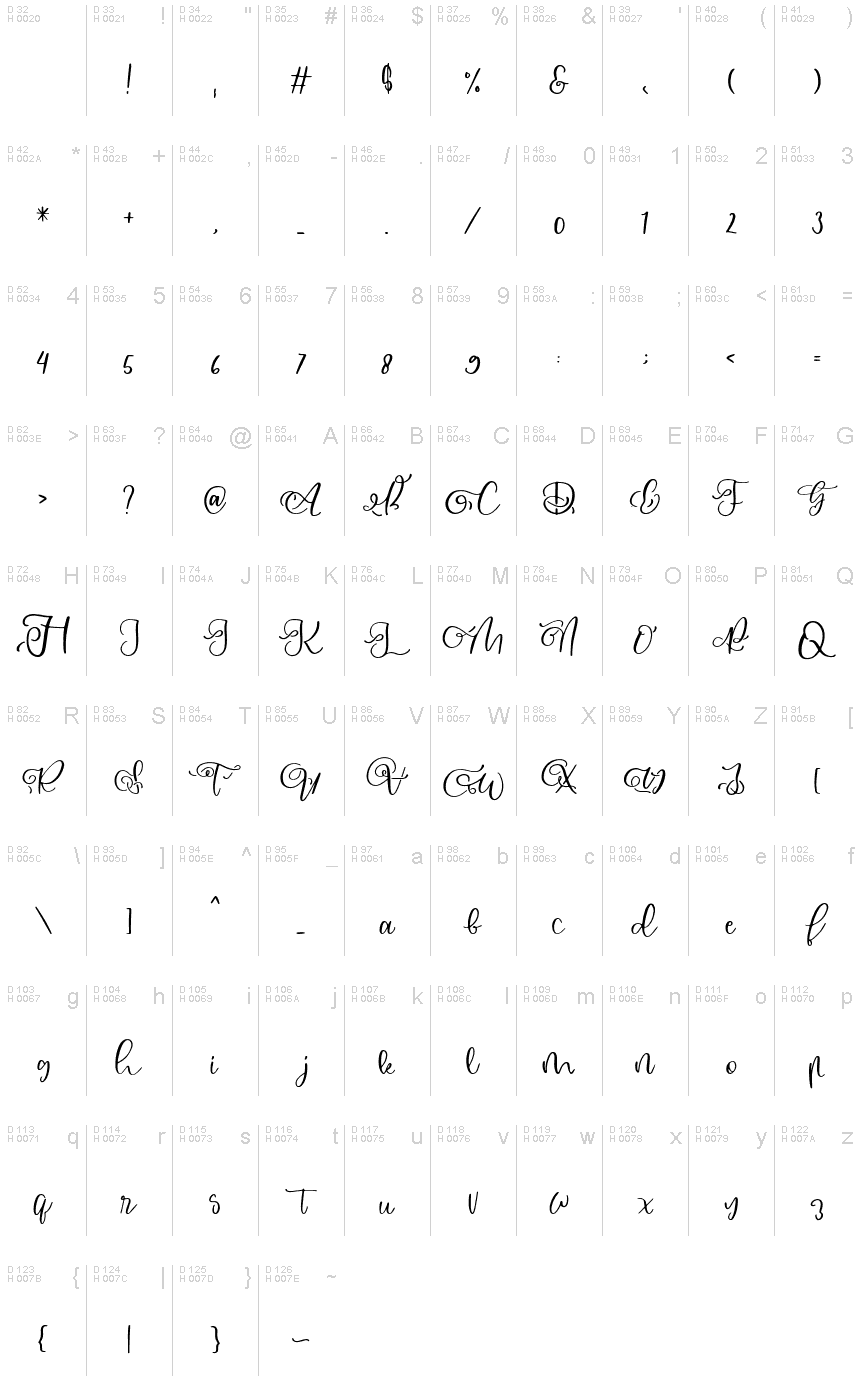 D 32 H 0020 D 33 H 0021 ! D 34 H 0022 " D 35 H 0023 # D 36 H 0024 $ D 37 H 0025 % D 38 H 0026 & D 39 H 0027 ' D 40 H 0028 ( D 41 H 0029 )
! ˌ # $ % & ˎ ( )
D 42 H 002A * D 43 H 002B + D 44 H 002C , D 45 H 002D - D 46 H 002E . D 47 H 002F / D 48 H 0030 0 D 49 H 0031 1 D 50 H 0032 2 D 51 H 0033 3
* + , - . / 0 1 2 3
D 52 H 0034 4 D 53 H 0035 5 D 54 H 0036 6 D 55 H 0037 7 D 56 H 0038 8 D 57 H 0039 9 D 58 H 003A : D 59 H 003B ; D 60 H 003C < D 61 H 003D =
4 5 6 7 8 9 : ; < =
D 62 H 003E > D 63 H 003F ? D 64 H 0040 @ D 65 H 0041 A D 66 H 0042 B D 67 H 0043 C D 68 H 0044 D D 69 H 0045 E D 70 H 0046 F D 71 H 0047 G
> ? @ A B C D E F G
D 72 H 0048 H D 73 H 0049 I D 74 H 004A J D 75 H 004B K D 76 H 004C L D 77 H 004D M D 78 H 004E N D 79 H 004F O D 80 H 0050 P D 81 H 0051 Q
H I J K L M N O P Q
D 82 H 0052 R D 83 H 0053 S D 84 H 0054 T D 85 H 0055 U D 86 H 0056 V D 87 H 0057 W D 88 H 0058 X D 89 H 0059 Y D 90 H 005A Z D 91 H 005B [
R S T U V W X Y Z [
D 92 H 005C \ D 93 H 005D ] D 94 H 005E ^ D 95 H 005F _ D 97 H 0061 a D 98 H 0062 b D 99 H 0063 c D 100 H 0064 d D 101 H 0065 e D 102 H 0066 f
\ ] ^ _ a b c d e f
D 103 H 0067 g D 104 H 0068 h D 105 H 0069 i D 106 H 006A j D 107 H 006B k D 108 H 006C l D 109 H 006D m D 110 H 006E n D 111 H 006F o D 112 H 0070 p
g h i j k l m n o p
D 113 H 0071 q D 114 H 0072 r D 115 H 0073 s D 116 H 0074 t D 117 H 0075 u D 118 H 0076 v D 119 H 0077 w D 120 H 0078 x D 121 H 0079 y D 122 H 007A z
q r s t u v w x y z
D 123 H 007B { D 124 H 007C | D 125 H 007D } D 126 H 007E ~
{ | } ~